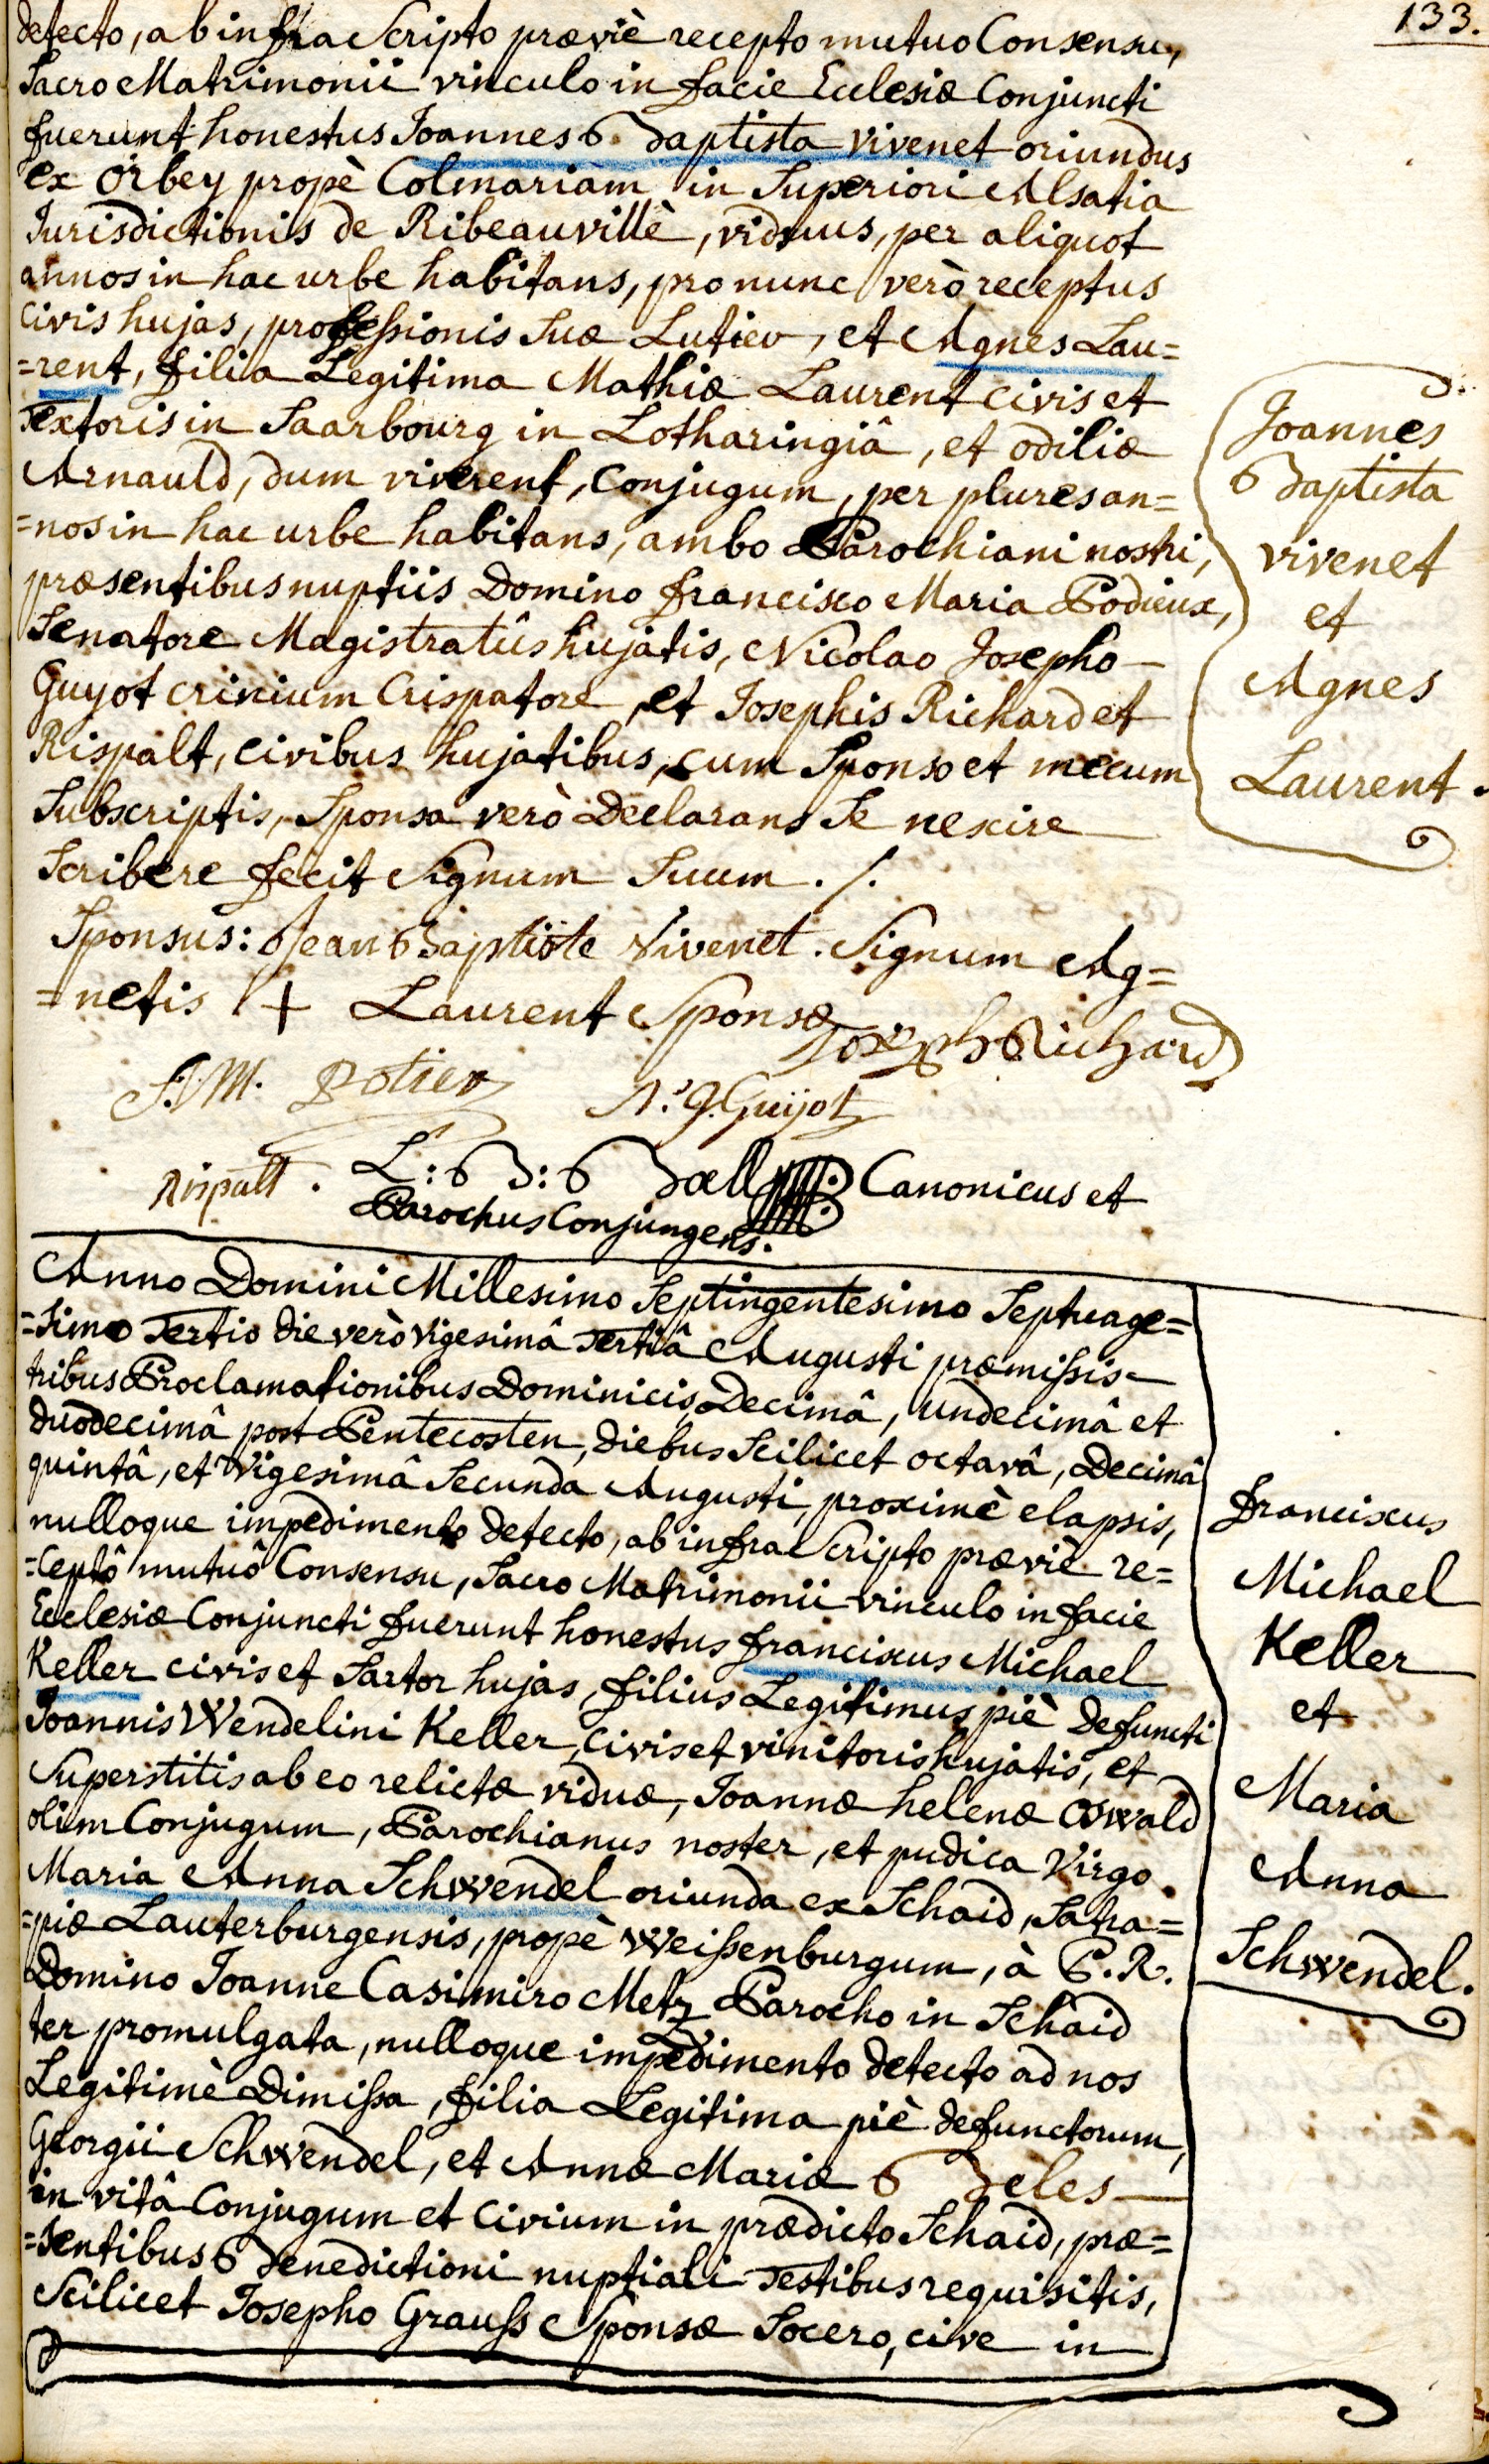 133.
detecto, ab infra Scripto præviè recepto mutuo Consensu,
Sacro Matrimonii vinculo in facie Ecclesiæ Conjuncti
fuerunt honestus Joannes Baptista Vivenet oriundus
ex Orbey propè Colmariam in Superiori Alsatia
Jurisdictionis de Ribeauvillè, viduus, per aliquot
annos in hac urbe habitans, pro nunc verò receptus
Civis hujas, professionis Suæ Lutier, et Agnes Lau=
=rent, filia Legitima Mathiæ Laurent civis et
Textoris in Saarbourg in Lotharingiâ, et odiliæ
Arnauld, dum viverent, Conjugum, per plures an=
=nos in hac urbe habitans, ambo Parochiani nostri,
præsentibus nuptiis Domino francisco Maria Podieux,
Senatore Magistratûs hujatis, Nicolao Josepho
Guyot crinium Crispatore, et Josephis Richard et
Rispalt, Civibus hujatibus, cum Sponso et mecum
Subscriptis, Sponsa verò Declarans Se nescire
Scribere fecit Signum Suum ./.
Joannes
Baptista
vivenet
et
Agnes
Laurent.
Sponsus: Jean Baptiste Vivenet. Signum Ag=
=netis + Laurent Sponsæ
Joseph Richard
F. M. Potier N. J. Guijot
Rispalt. L: B: Bæll Canonicus et
Parochus Conjungens.
Anno Domini Millesimo Septingentesimo Septuage=
=simo Tertio die verò vigesimâ Tertiâ Augusti præmissis
tribus Proclamationibus Dominicis, Decimâ, undecimâ et
duodecimâ post Pentecosten, diebus Scilicet octavâ, Decimâ
quintâ, et Vigesimâ Secunda Augusti, proximè elapsis,
nulloque impedimento detecto, ab infra Scripto præviè re=
=ceptô mutuô Consensu, Sacro Matrimonii vinculo in facie
Ecclesiæ Conjuncti fuerunt honestus franciscus Michael
Keller civis et Sartor hujas, filius Legitimus piè defuncti
Joannis Wendelini Keller, Civis et vinitoris hujatis, et
Superstitis ab eo relictæ viduæ, Joannæ helenæ Oswald
olim Conjugum, Parochianus noster, et pudica Virgo
Maria Anna Schwendel oriunda ex Schaid, Satra=
=piæ Lauterburgensis, propè Weissenburgum, à P. R.
Domino Joanne Casimiro Metz Parocho in Schaid
ter promulgata, nulloque impedimento detecto ad nos
Legitimè Dimissa, filia Legitima piè defunctorum,
Georgii Schwendel, et Annæ Mariæ Beles
in vitâ Conjugum et Civium in prædicto Schaid, præ=
=sentibus Benedictioni nuptiali Testibus requisitis,
Scilicet Josepho Grauss Sponsæ Socero, cive in
franciscus
Michael
Keller
et
Maria
Anna
Schwendel.